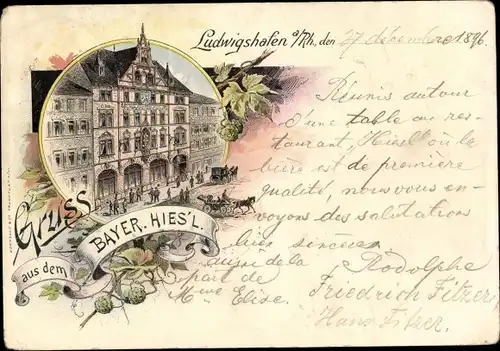 Ludwigshafen a/Rh., den 27 décembre 1896.
Réunis autour
d'une table au res-
taurant "Hiesl" où la
bière est de première
qualité, nous vous en-
voyons des salutations
bien sincères
de la
part de
Mme Elise.
Rodolphe
Friedrich Fitzer
Hans Fitzer.
Gruss
aus dem
BAYER. HIES'L.